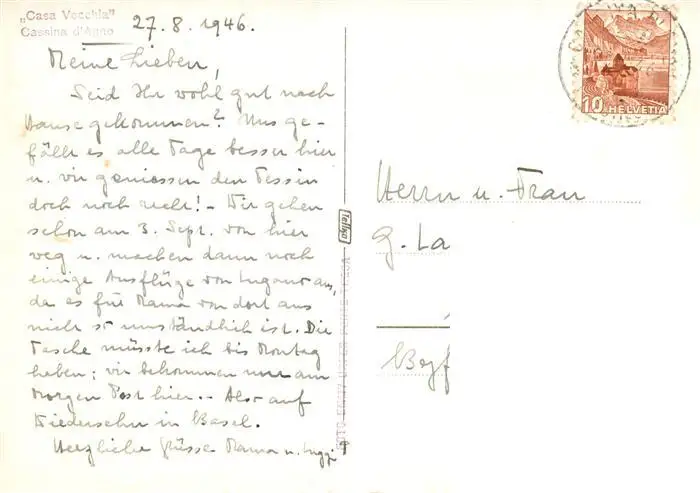 „Casa Vecchia"
Cassina d'Agno
27.8.1946.
Meine Lieben,
Seid Ihr wohl gut nach
Hause gekommen? Uns ge-
fällt es alle Tage besser hier
u. wir geniessen den Tessin
doch noch recht! – Wir gehen
schon am 3. Sept. von hier
weg u. machen dann noch
einige Ausflüge von Lugano aus,
da es für Mama von dort aus
nicht so umständlich ist. Die
Tasche müsste ich bis Montag
haben; wir bekommen nur am
Morgen Post hier. – Also auf
Wiedersehn in Basel.
Herzliche Grüsse Mama u.
10 HELVETIA
Herrn u. Frau
G. La